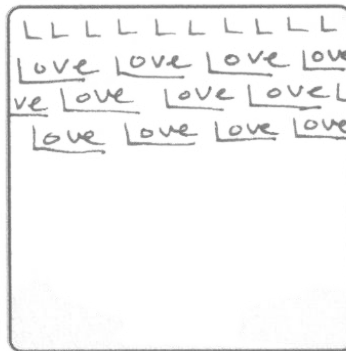 L L L L L L L L L
Love Love Love Love
ve Love Love Love L
Love Love Love Love